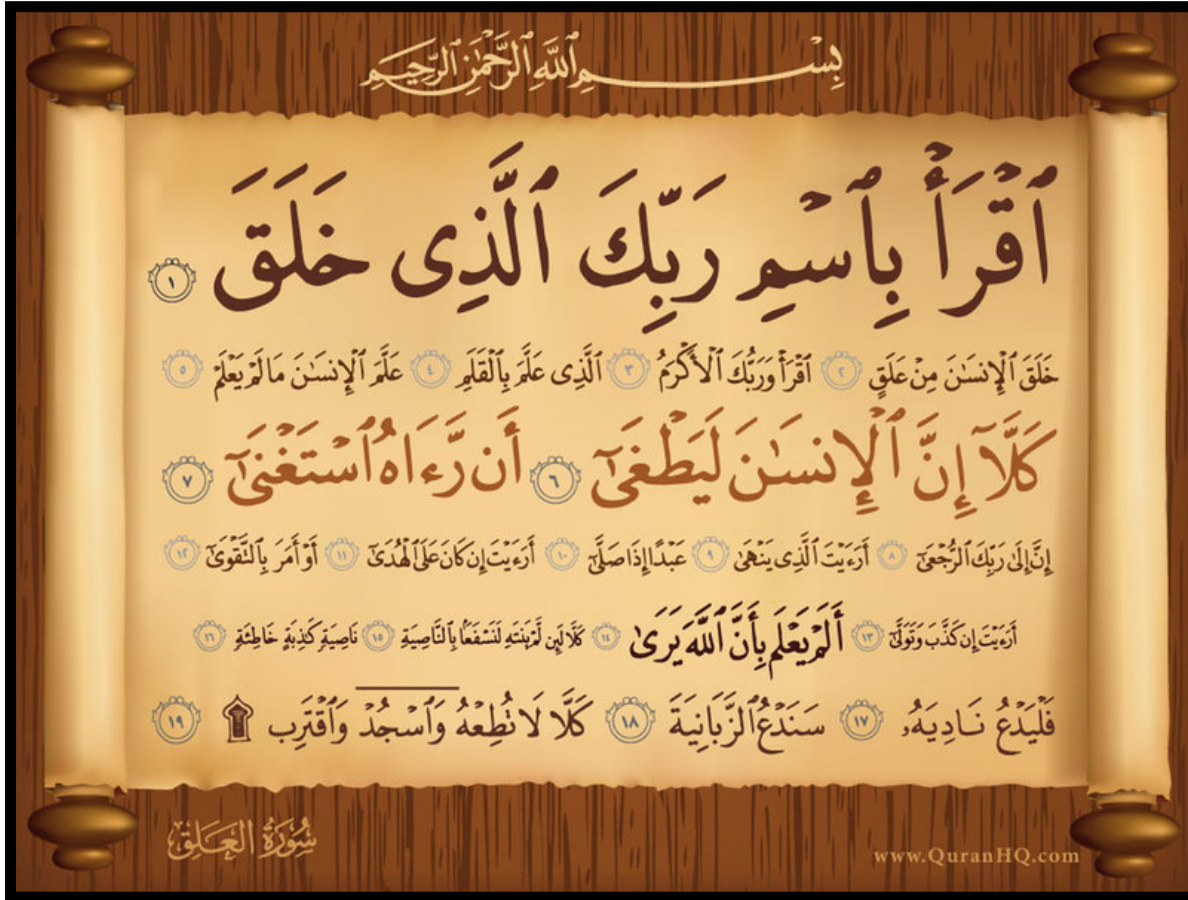 بِسْمِ ٱللَّهِ ٱلرَّحْمَٰنِ ٱلرَّحِيمِ
ٱقْرَأْ بِٱسْمِ رَبِّكَ ٱلَّذِى خَلَقَ ١
خَلَقَ ٱلْإِنسَٰنَ مِنْ عَلَقٍ ٢ ٱقْرَأْ وَرَبُّكَ ٱلْأَكْرَمُ ٣ ٱلَّذِى عَلَّمَ بِٱلْقَلَمِ ٤ عَلَّمَ ٱلْإِنسَٰنَ مَا لَمْ يَعْلَمْ ٥
كَلَّآ إِنَّ ٱلْإِنسَٰنَ لَيَطْغَىٰٓ ٦ أَن رَّءَاهُ ٱسْتَغْنَىٰٓ ٧
إِنَّ إِلَىٰ رَبِّكَ ٱلرُّجْعَىٰٓ ٨ أَرَءَيْتَ ٱلَّذِى يَنْهَىٰ ٩ عَبْدًا إِذَا صَلَّىٰٓ ١٠ أَرَءَيْتَ إِن كَانَ عَلَى ٱلْهُدَىٰٓ ١١ أَوْ أَمَرَ بِٱلتَّقْوَىٰٓ ١٢
أَرَءَيْتَ إِن كَذَّبَ وَتَوَلَّىٰٓ ١٣ أَلَمْ يَعْلَم بِأَنَّ ٱللَّهَ يَرَىٰ ١٤ كَلَّا لَئِن لَّمْ يَنتَهِ لَنَسْفَعًۢا بِٱلنَّاصِيَةِ ١٥ نَاصِيَةٍ كَٰذِبَةٍ خَاطِئَةٍ ١٦
فَلْيَدْعُ نَادِيَهُۥ ١٧ سَنَدْعُ ٱلزَّبَانِيَةَ ١٨ كَلَّا لَا تُطِعْهُ وَٱسْجُدْ وَٱقْتَرِب ۩ ١٩
سُورَةُ العَلَقِ
www.QuranHQ.com